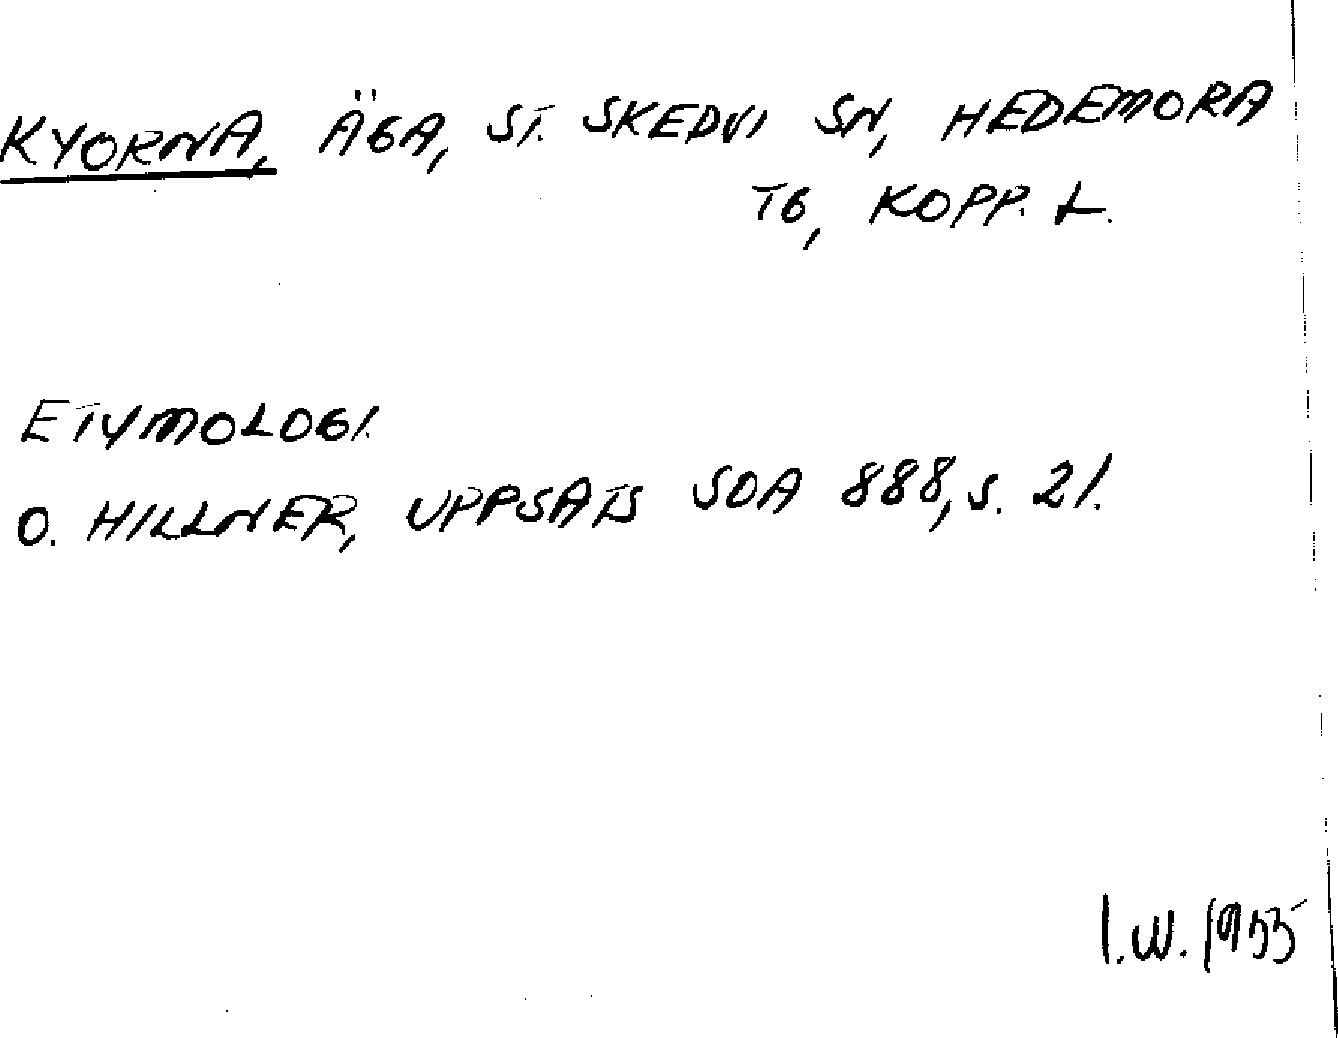 KYORNA, ÄGA, ST. SKEDVI SN, HEDEMORA
TG, KOPP. L.
ETYMOLOGI.
O. HILLNER, UPPSATS SOA 888, S. 21.
I.W. 1955